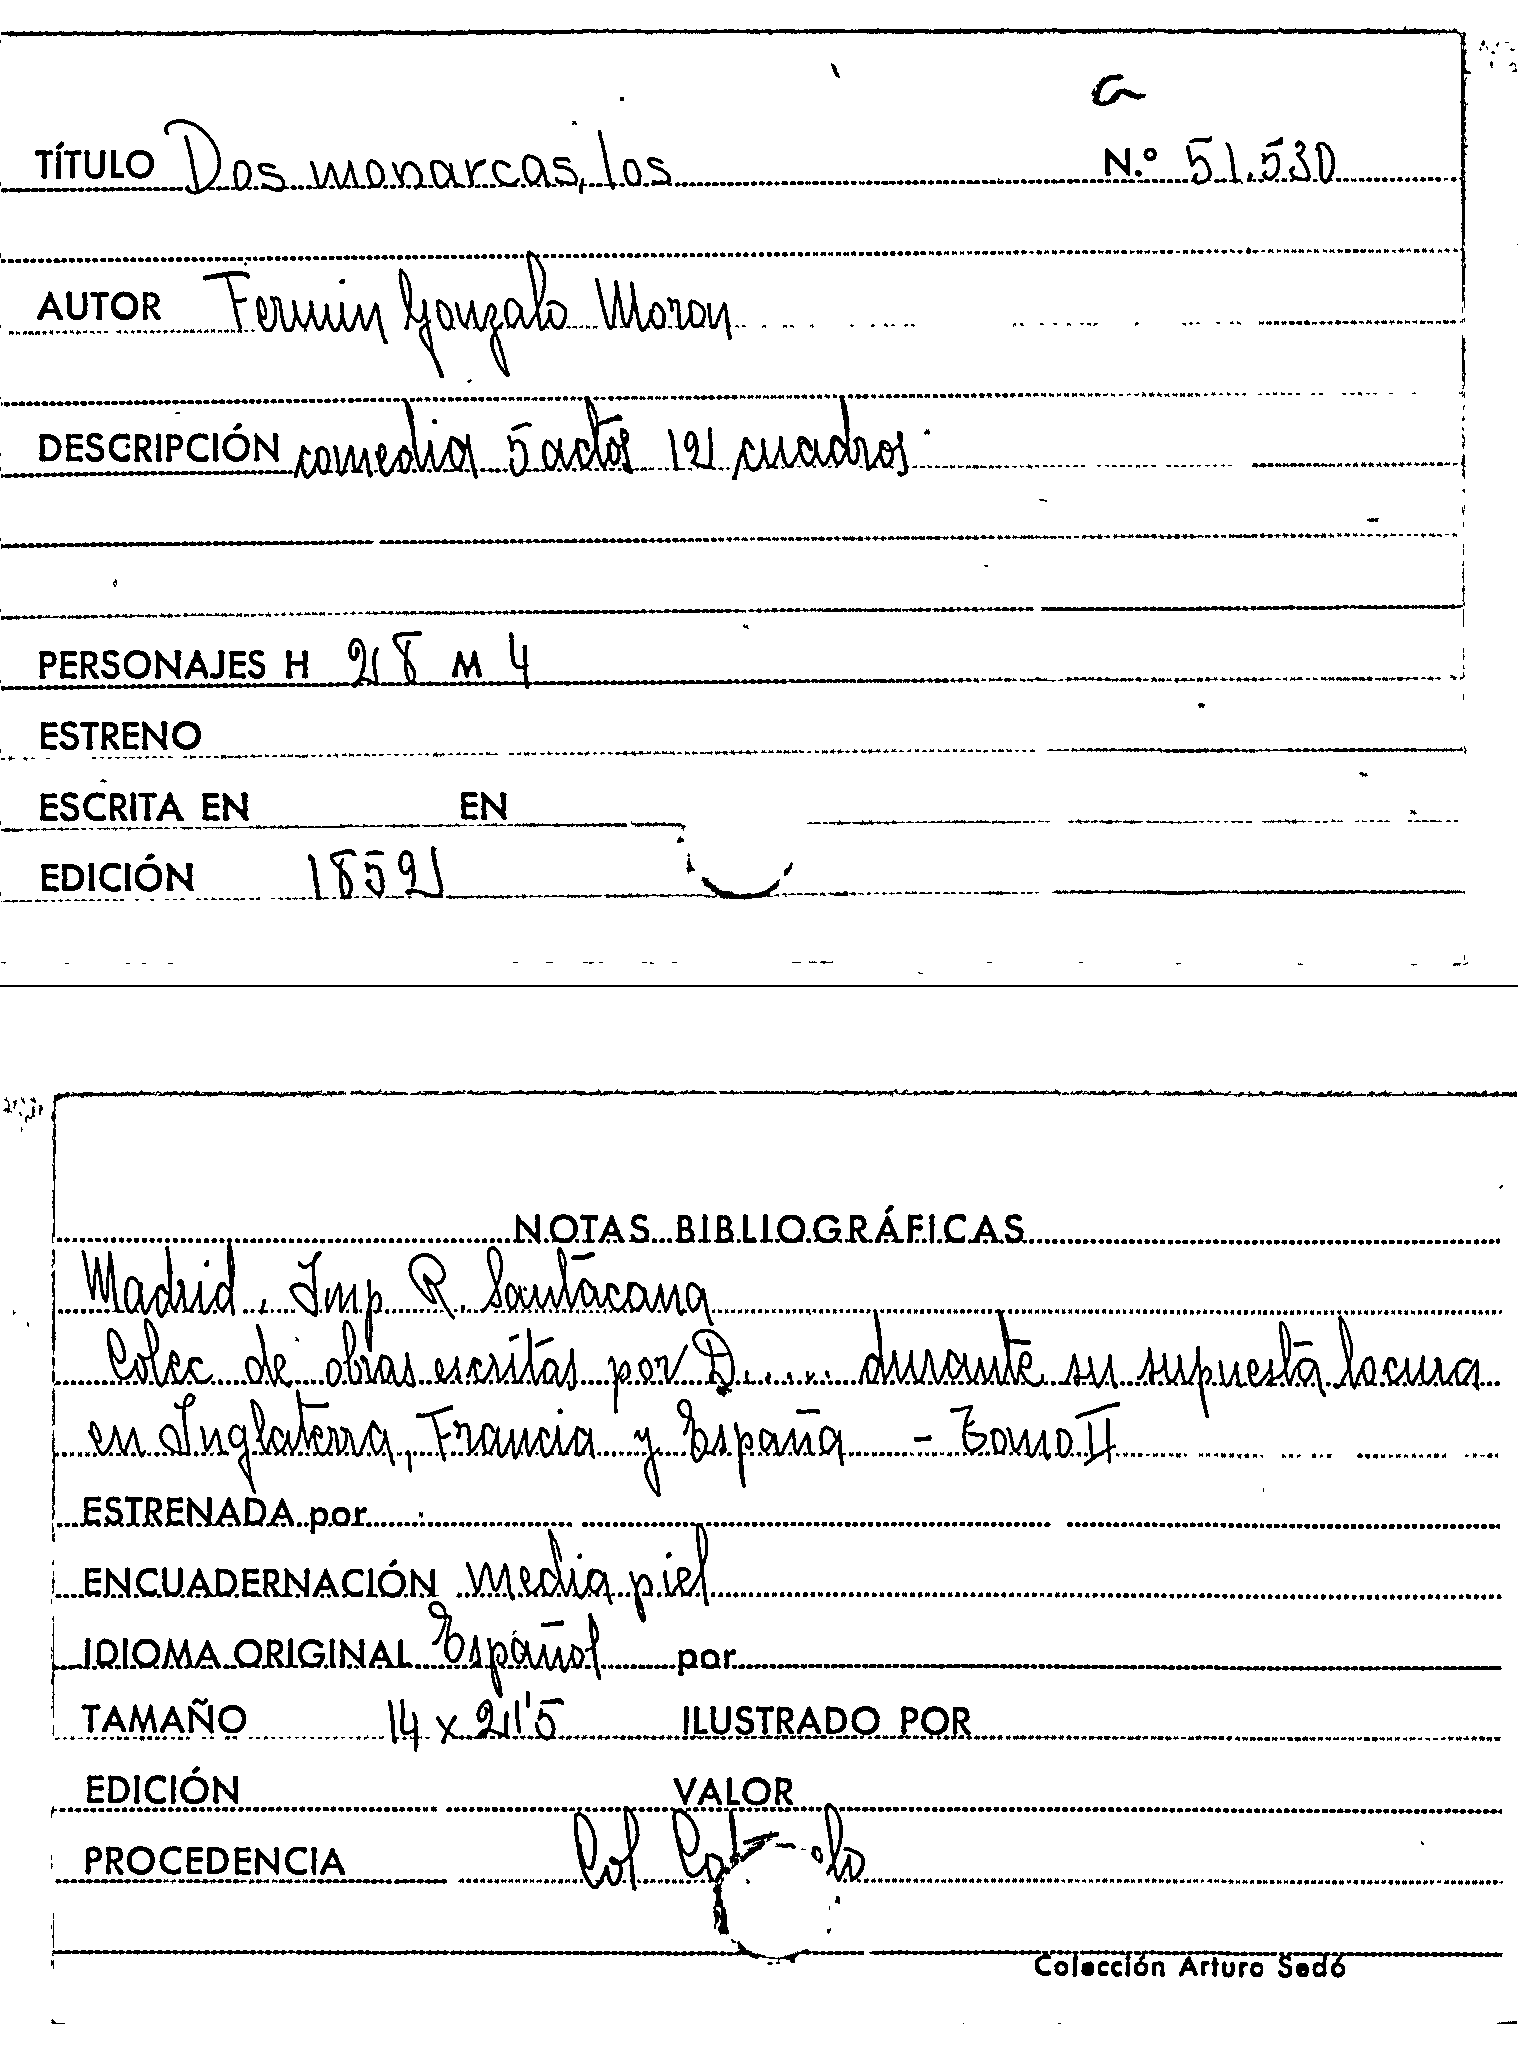 G
TÍTULO Dos monarcas, los N.º 51.530
AUTOR Fermin Gonzalo Moron
DESCRIPCIÓN comedia 5 actos 12 cuadros
PERSONAJES H 28 M 4
ESTRENO
ESCRITA EN EN
EDICIÓN 1852
NOTAS BIBLIOGRÁFICAS
Madrid. Imp R. Santacana
Colec de obras escritas por D..... durante su supuesta locura
en Inglaterra, Francia y España - Tomo II
ESTRENADA por
ENCUADERNACIÓN media piel
IDIOMA ORIGINAL Español por
TAMAÑO 14 x 21'5 ILUSTRADO POR
EDICIÓN VALOR
PROCEDENCIA Col
Colección Arturo Sedó